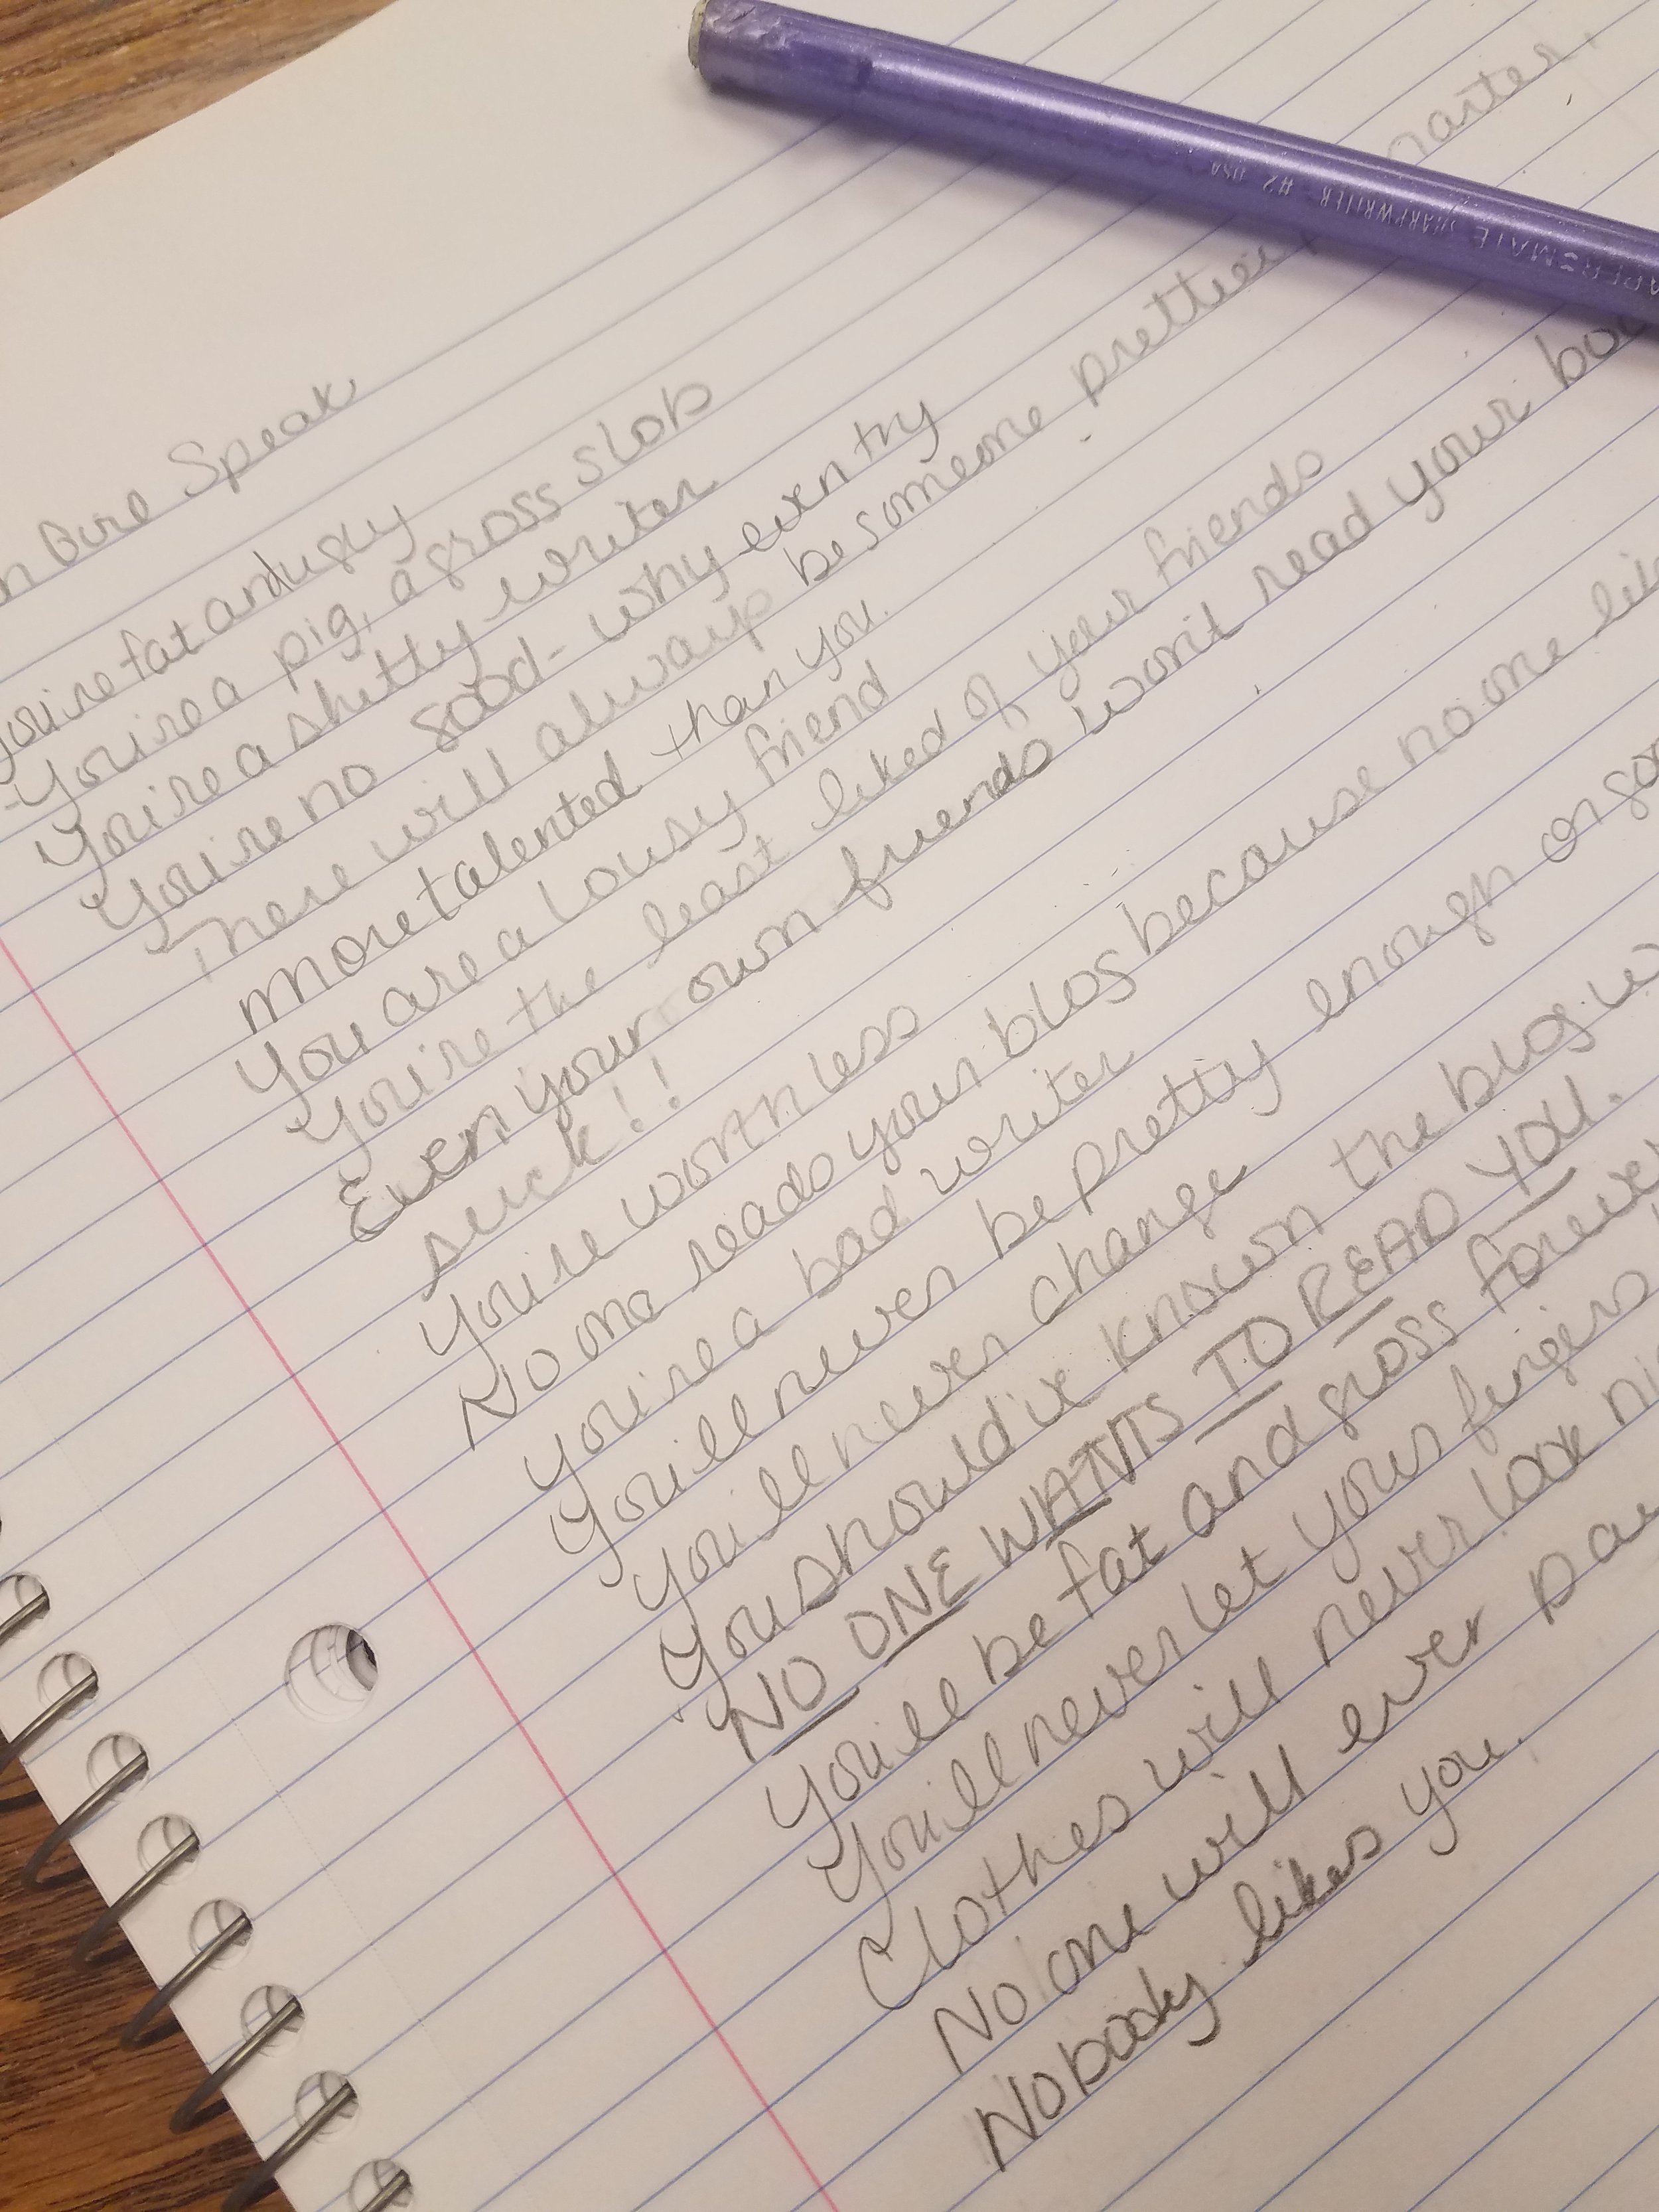 Speak
You're fat and ugly
-You're a pig, a gross slob
You're a shitty writer
You're no good - why even try
There will always be someone prettier, smarter,
more talented than you.
You are a lousy friend
You're the least liked of your friends
Even your own friends won't read your
suck!!
You're worthless
No one reads your blog because no one
You're a bad writer
You'll never be pretty enough or
You'll never change
You should've known the blog
NO ONE WANTS TO READ YOU.
You'll be fat and gross forever
You'll never let your fingers
Clothes will never look
No one will ever
Nobody likes you.
PAPER MATE SHARPWRITER #2 USA